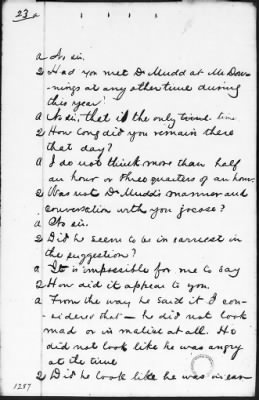 23a
a No sir.
Q Had you met Dr Mudd at Mr Dow-
nings at any other time during
this year?
a No sir, that is the only time
Q How long did you remain there
that day?
a I do not think more than half
an hour or three quarters of an hour.
Q Was not Dr Mudd's manner and
conversation with you jocose?
a No sir.
Q Did he seem to be in earnest in
the suggestion?
a It is impossible for me to say
Q How did it appear to you.
a From the way he said it I con-
sidered that - he did not look
mad or in malice at all. He
did not look like he was angry
at the time
Q Did he look like he was in ear-
1257